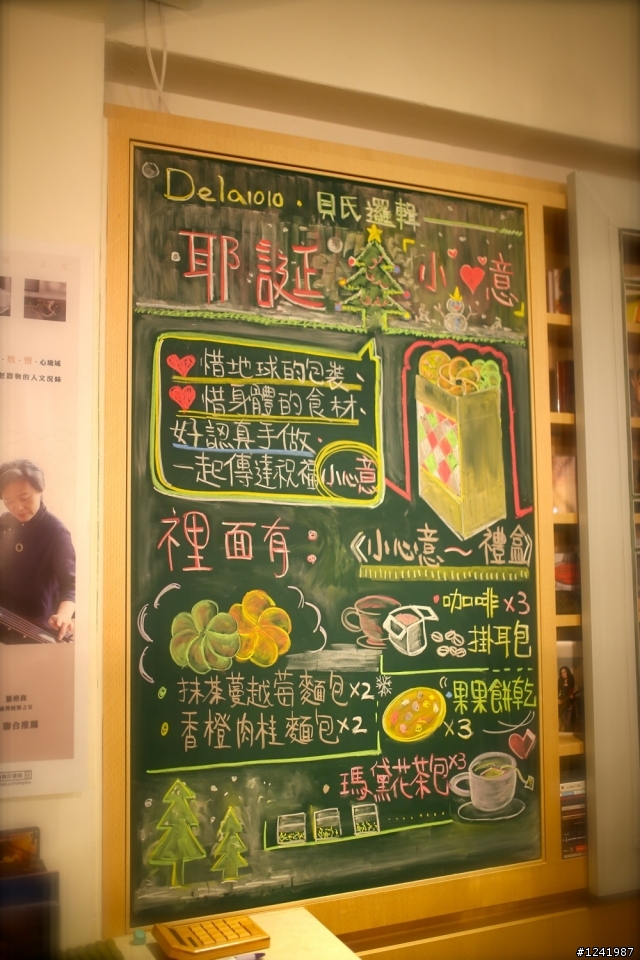 Dela1010 · 貝氏邏輯
耶誕 小♥意
♥惜地球的包裝、
♥惜身體的食材、
好認真手做、
一起傳達祝福小心意
裡面有：
《小心意～禮盒》
咖啡x3
掛耳包
抹茶蔓越莓麵包x2
香橙肉桂麵包x2
果果餅乾
x3
瑪黛花茶包x3
心織城
人文況錄
聯合推薦
#1241987